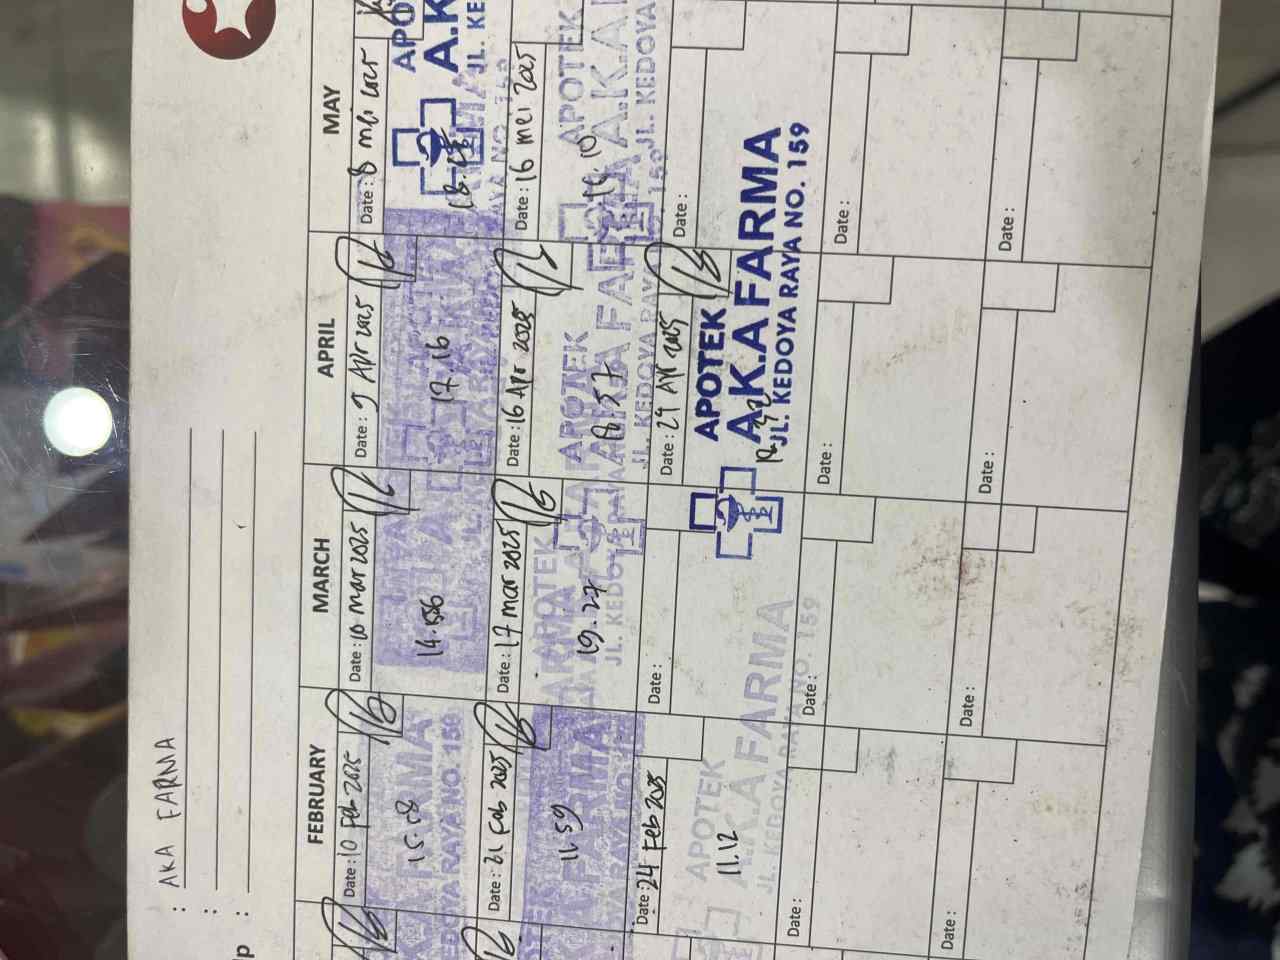 : AKA FARMA
:
:
p
FEBRUARY
MARCH
APRIL
MAY
Date : 10 Feb 2025
15.58
FARMA
RAYA NO. 159
Date : 10 Mar 2025
14.56
Date : 9 Apr 2025
17.16
Date : 8 mei 2025
18.
APO
A.K
JL. KE
Date : 21 Feb 2025
11.59
FARMA
Date : 17 mar 2025
19.27
APOTEK
JL. KEDOYA
Date : 16 Apr 2025
57
APOTEK
A FA
JL. KEDOYA RAYA
Date : 16 mei 2025
19.10
APOTEK
A.K.A
JL. KEDOYA
Date : 24 Feb 2025
11.12
APOTEK
A.K.A FARMA
JL. KEDOYA RAYA NO. 159
Date :
Date : 24 Apr 2025
APOTEK
A.K.A FARMA
JL. KEDOYA RAYA NO. 159
Date :
Date :
Date :
Date :
Date :
Date :
Date :
Date :
Date :